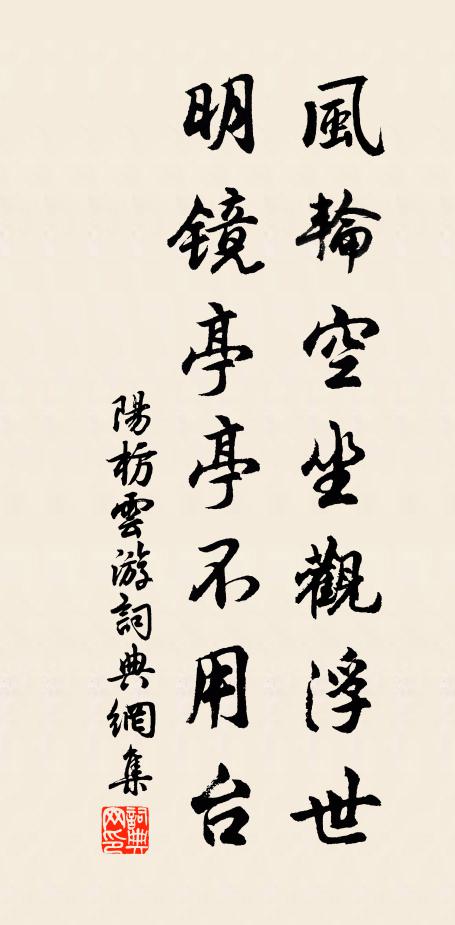 風輪空坐觀浮世
明鏡亭亭不用台
陽枋雲游詞典網集
詞典網印